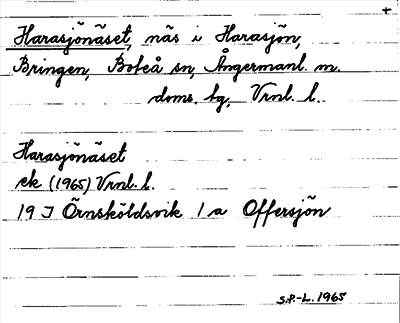 +
Harasjönäset, näs i Harasjön,
Bringen, Boteå sn, Ångermanl. m.
doms. tg, Vrnl. l.
Harasjönäset
ek (1965) Vrnl. l.
19 J Örnsköldsvik 1 a Offersjön
S.P-L. 1965